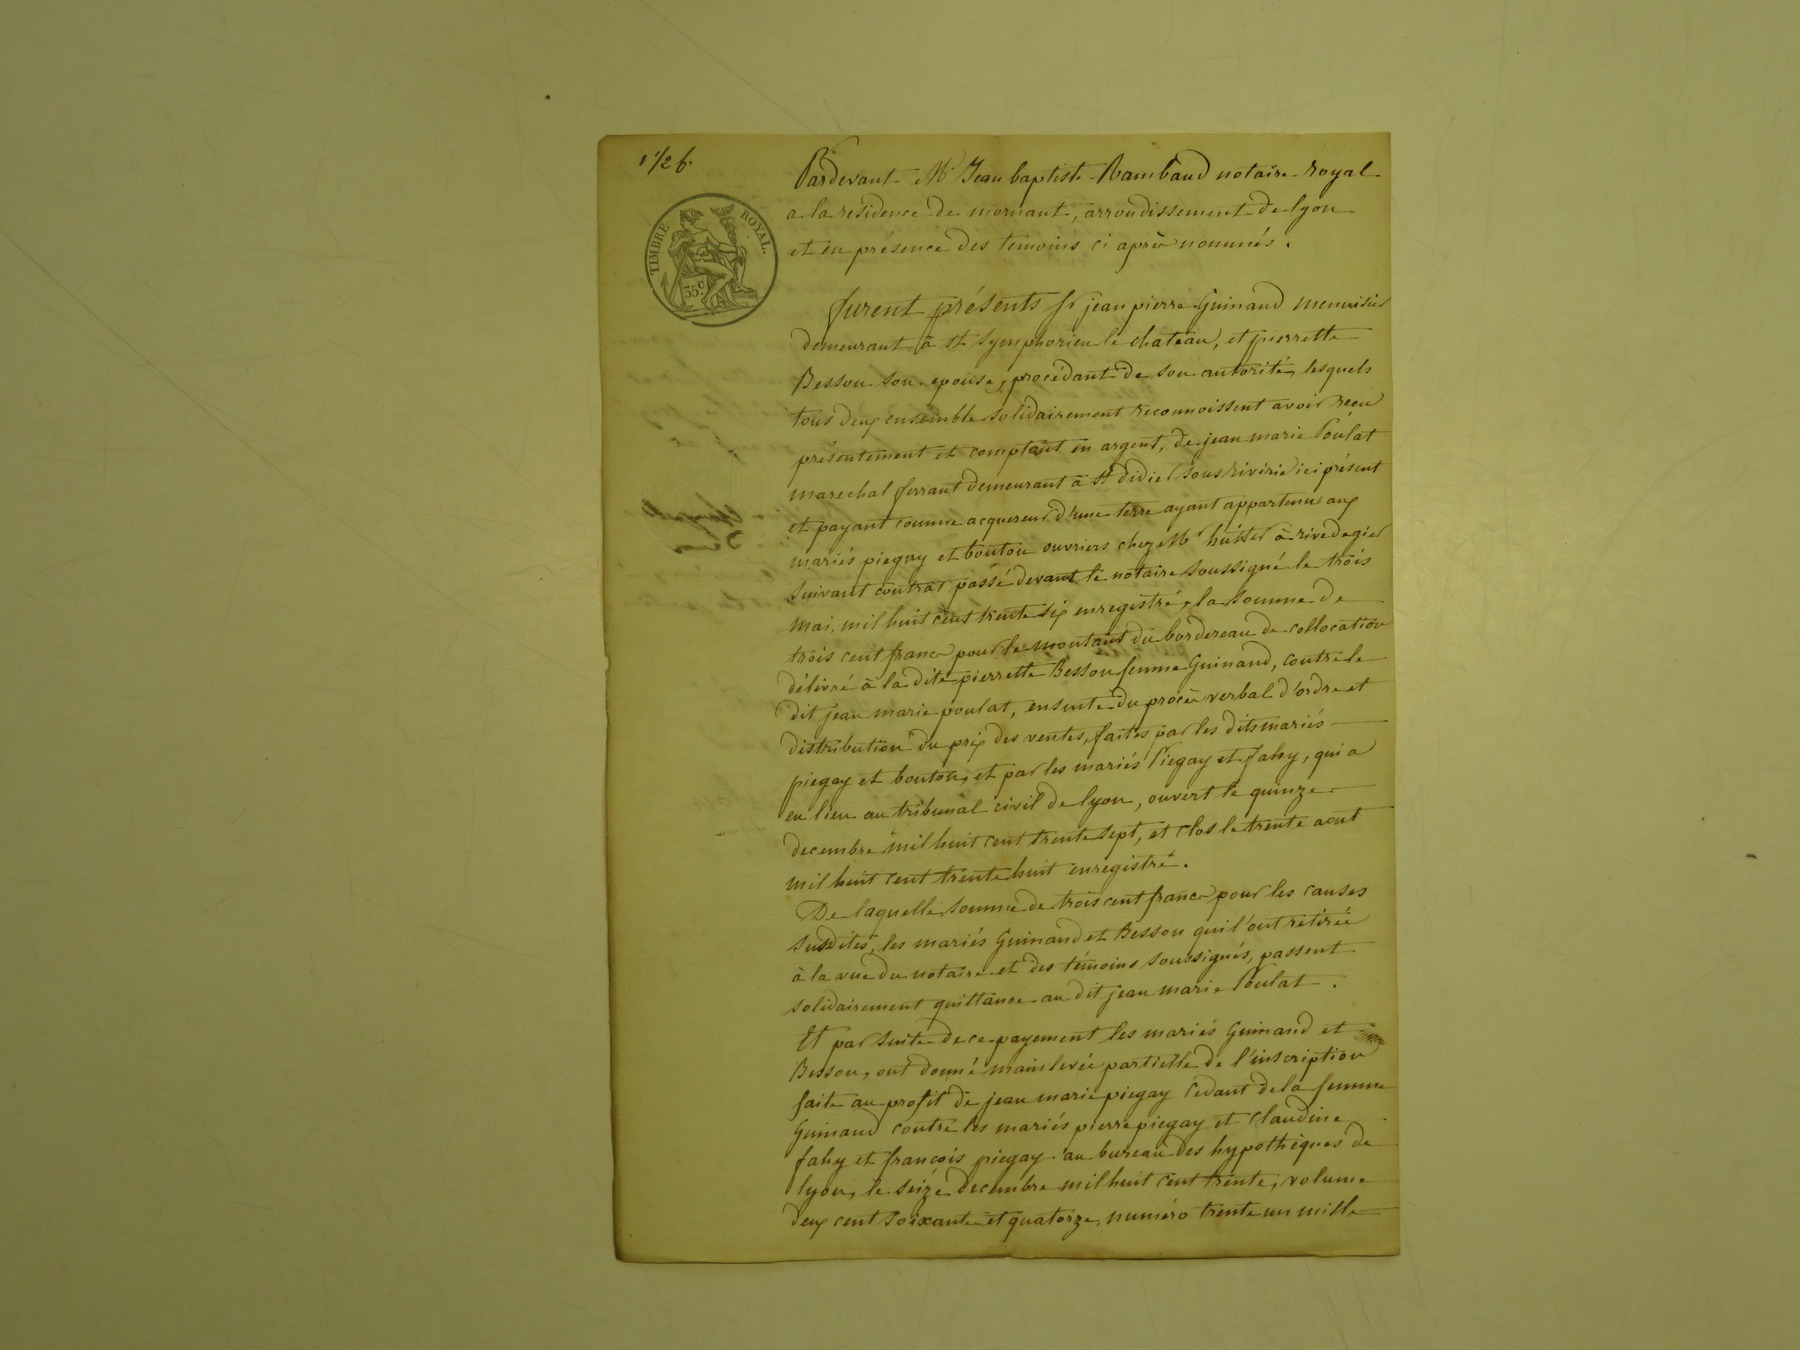 1 1/2 f.
TIMBRE ROYAL.
35 c.
Pardevant Me Jean baptiste Rambaud notaire royal
a la residence de mornant, arrondissement de lyon
et en présence des temoins ci après nommés.
furent présents sr jean pierre Guinand menuisier
demeurant à st symphorien le chateau, et pierrette
Besson son epouse, procédant de son autorité, lesquels
tous deux ensemble solidairement reconnoissent avoir reçu
présentement et comptant en argent, de jean marie Poulat
marechal ferrant demeurant à st didier sous riverie ici présent
et payant comme acquereur d'une terre ayant appartenu aux
mariés piegay et bouton ouvriers chez Mr hutter à rivedegier
suivant contrat passé devant le notaire soussigné le trois
mai, mil huit cent trente six enregistré, la somme de
trois cent francs pour le montant du bordereau de collocation
délivré à la dite pierrette Besson femme Guinand, contre le
dit jean marie poulat, ensuite du procès verbal d'ordre et
distribution du prix des ventes, faites par les dits mariés
piegay et bouton, et par les mariés Piegay et fahy, qui a
eu lieu au tribunal civil de lyon, ouvert le quinze
decembre mil huit cent trente sept, et clos le trente aout
mil huit cent trente huit enregistré.
De laquelle somme de trois cent francs pour les causes
susdites, les mariés Guinand et Besson qui l'ont retirée
à la vue du notaire et des témoins soussignés, passent
solidairement quittance au dit jean marie Poulat.
Et par suite de ce payement les mariés Guinand et
Besson, ont donné main levée partielle de l'inscription
faite au profit de jean marie piegay cédant de la femme
Guinand contre les mariés pierre piegay et Claudine
fahy et françois piegay au bureau des hypothèques de
lyon, le seize decembre mil huit cent trente, volume
deux cent soixante et quatorze, numéro trente un mille